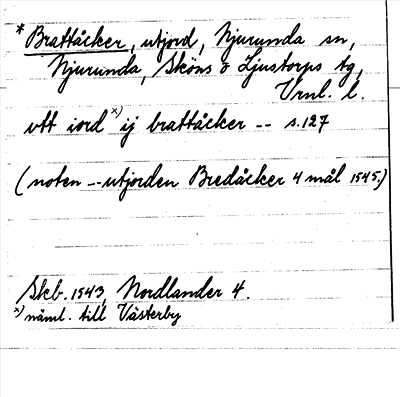 * Brattåcker, utjord, Njurunda sn,
Njurunda, Sköns o Ljustorps tg,
Vrnl. l.
vtt iord x) ij brattåcker -- s. 127
(noten -- utjorden Bredåcker 4 mål 1545.)
Skb. 1543, Nordlander 4.
x) näml. till Västerby